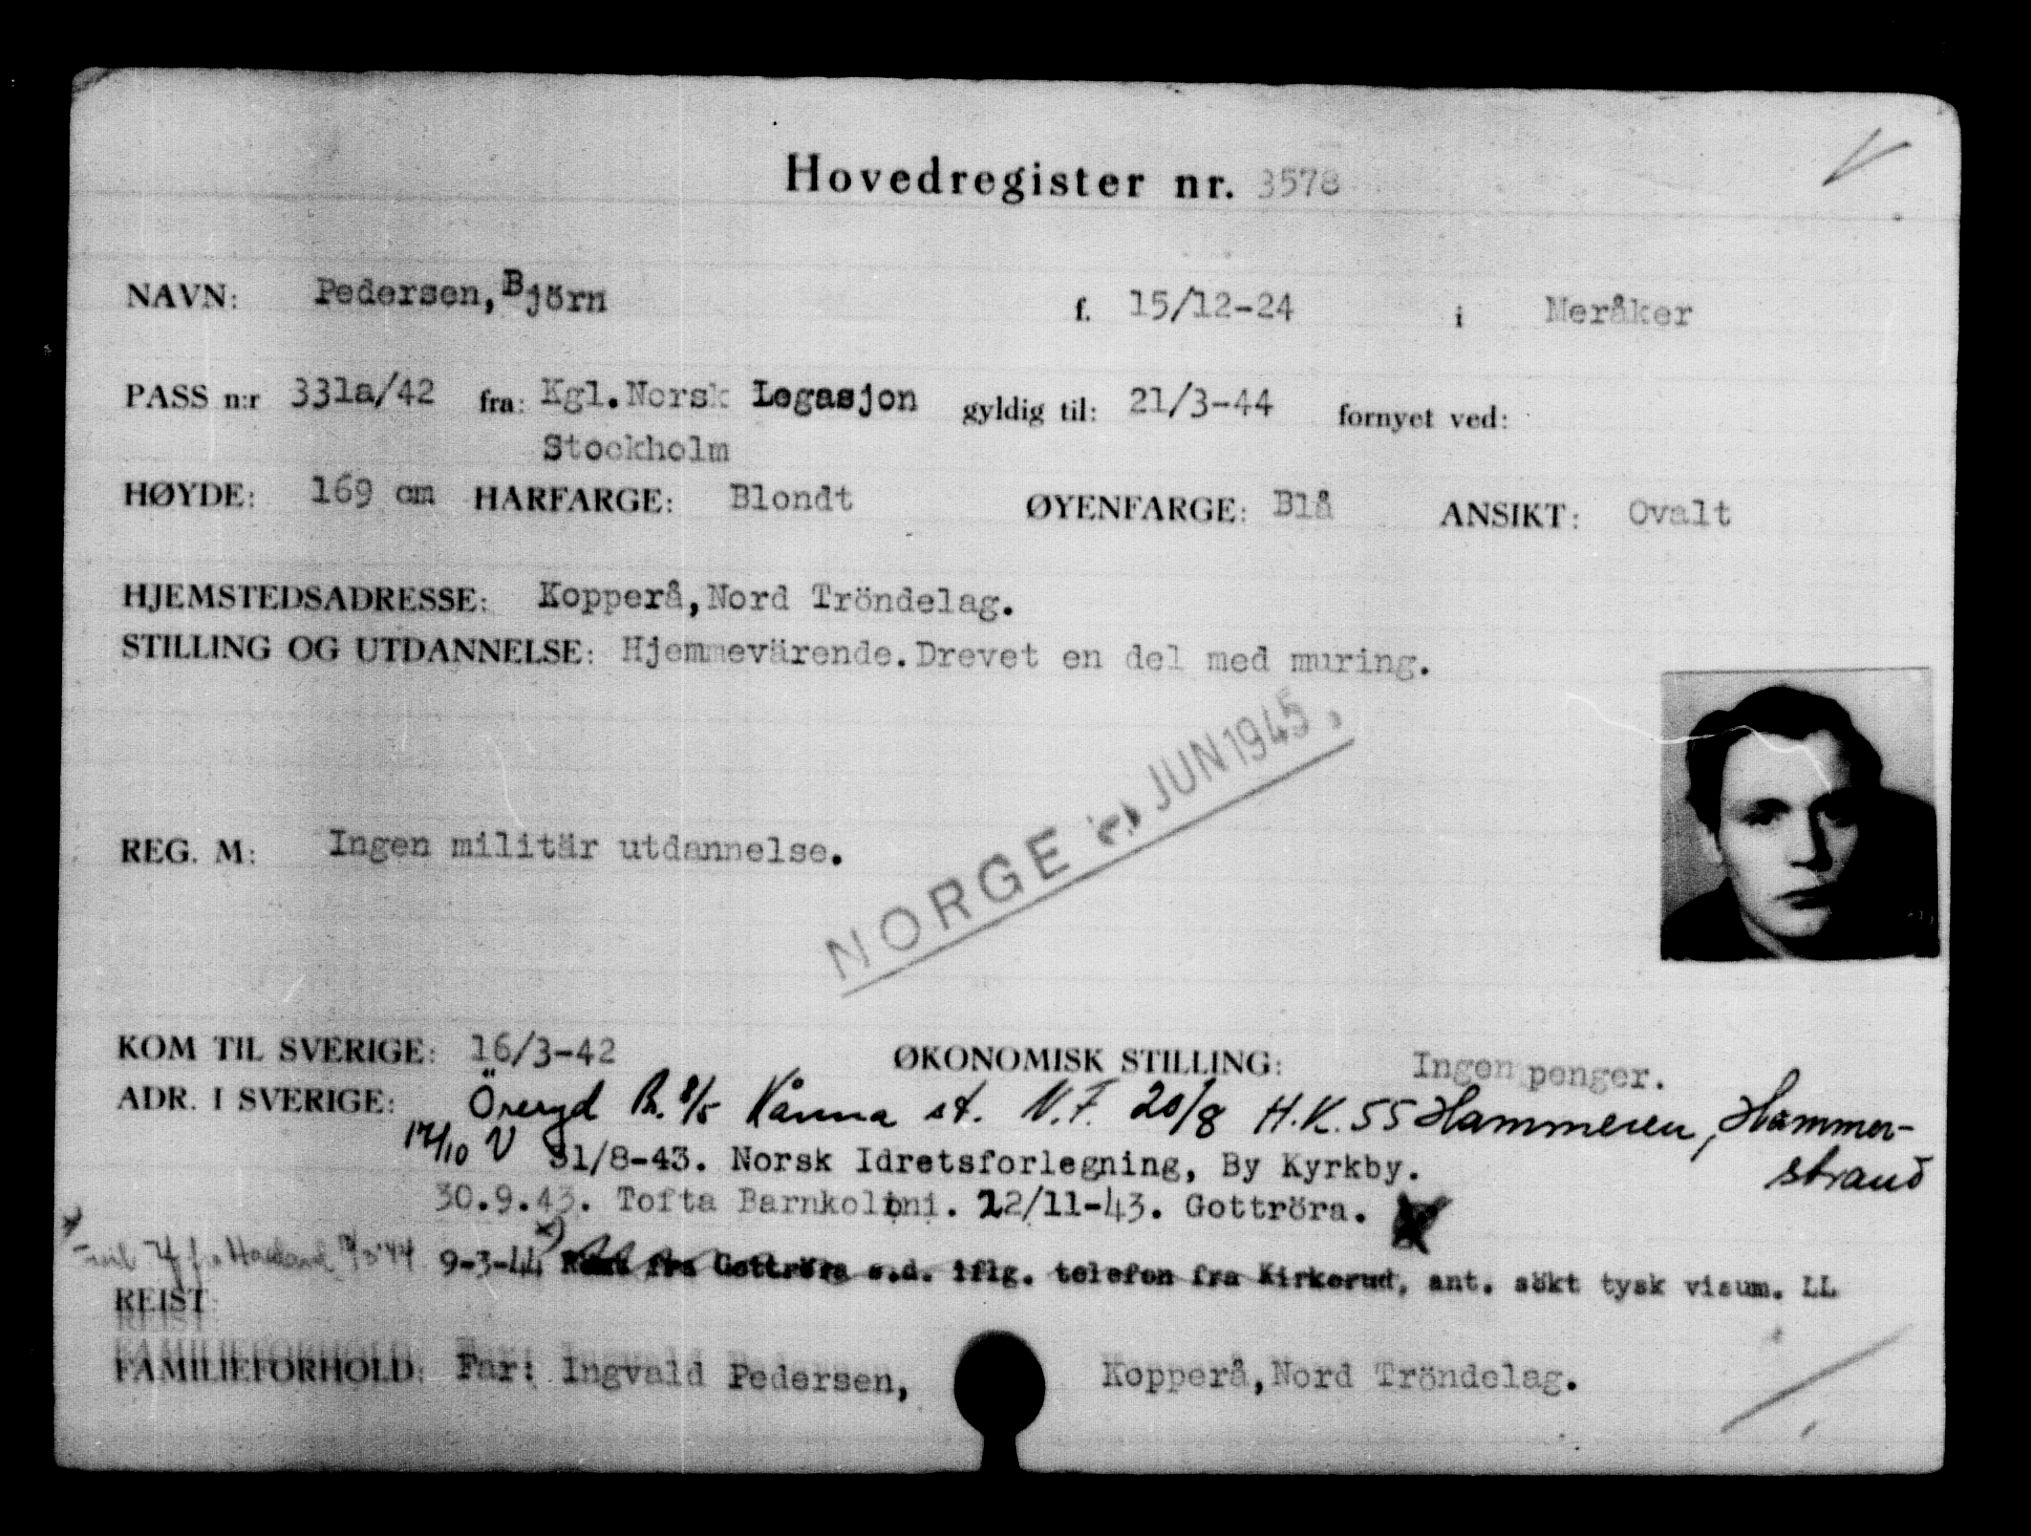 Hovedregister nr. 3578
NAVN: Pedersen, Björn f. 15/12-24 i Meråker
PASS n:r 331a/42 fra: Kgl. Norsk Legasjon gyldig til: 21/3-44 fornyet ved:
Stockholm
HØYDE: 169 cm HARFARGE: Blondt ØYENFARGE: Blå ANSIKT: Ovalt
HJEMSTEDSADRESSE: Kopperå, Nord Tröndelag.
STILLING OG UTDANNELSE: Hjemmevärende. Drevet en del med muring.
NORGE JUN 1945
REG. M: Ingen militär utdannelse.
KOM TIL SVERIGE: 16/3-42 ØKONOMISK STILLING: Ingen penger.
ADR. I SVERIGE: Öreryd 8/5 Kånna st. N.F. 20/8 H.K. 55 Hammeren, Hammer-
strand
17/10 V 31/8-43. Norsk Idretsforlegning, By Kyrkby.
30.9.43. Tofta Barnkoloni. 22/11-43. Gottröra.
9-3-44 x) fra Gottröra s.d. iflg. telefon fra Kirkerud, ant. sökt tysk visum. LL
REIST:
FAMILIEFORHOLD: Far: Ingvald Pedersen, Kopperå, Nord Tröndelag.